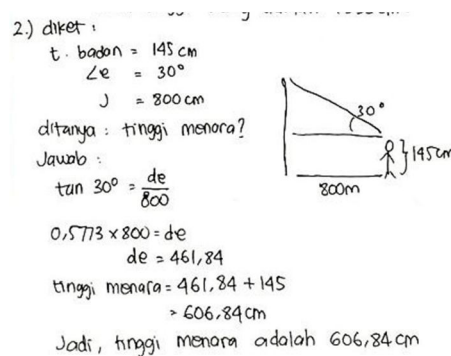 2.) diket :
t. badan = 145 cm
∠e = 30°
J = 800 cm
ditanya : tinggi menara?
Jawab :
tan 30° = de/800
0,5773 × 800 = de
de = 461,84
tinggi menara = 461,84 + 145
= 606,84 cm
Jadi, tinggi menara adalah 606,84 cm
30°
145cm
800m